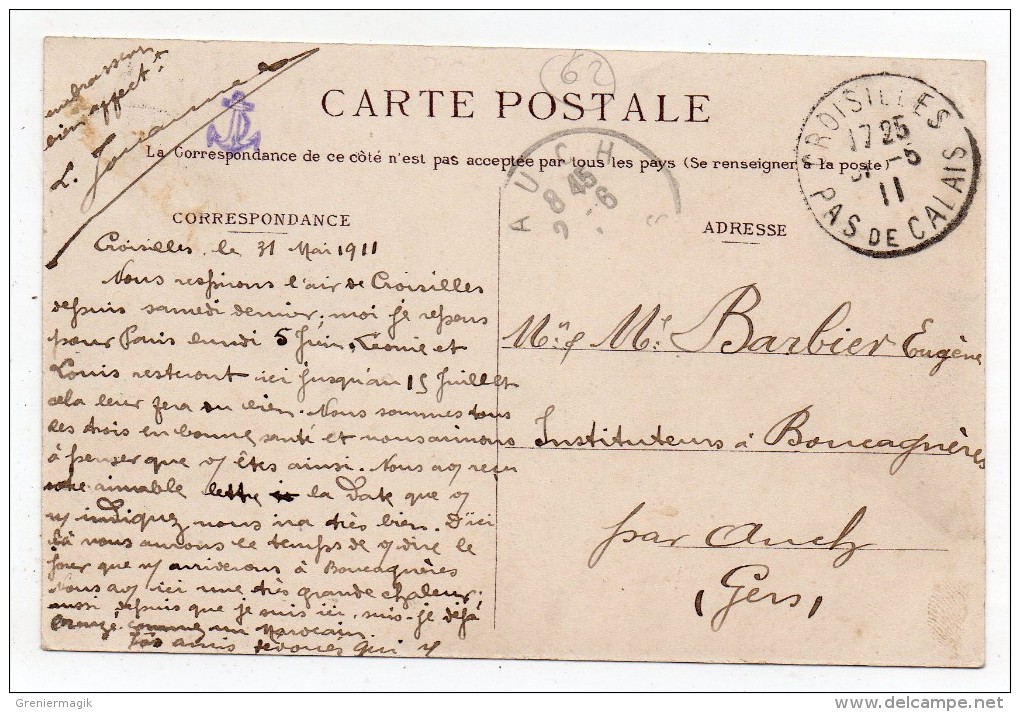 62
CARTE POSTALE
La Correspondance de ce côté n'est pas acceptée par tous les pays (Se renseigner à la poste)
CROISILLES
17 25
31 - 5
11
PAS DE CALAIS
AUCH
8 45
2 - 6
CORRESPONDANCE
ADRESSE
Croisilles, le 31 Mai 1911
Nous respirons l'air de Croisilles
depuis samedi dernier, moi je repars
pour Paris lundi 5 Juin, Léonie et
Louis resteront ici jusqu'au 15 Juillet
cela leur fera du bien. Nous sommes tous
les trois en bonne santé et nous aimons
à penser que v/ êtes ainsi. Nous av/ reçu
votre aimable lettre la date que v/
n/ indiquez nous ira très bien. D'ici
là nous aurons le temps de v/ dire le
jour que n/ arriverons à Boucagnères
Nous av/ ici une très grande chaleur,
aussi, depuis que je suis ici, suis-je déjà
bronzé comme un Marocain.
Vos amis dévoués qui v/
embrassent
bien affect.
L.
Mr & Me Barbier Eugène
Instituteurs à Boucagnères
par Auch
(Gers)
Greniermagik
www.delcampe.net